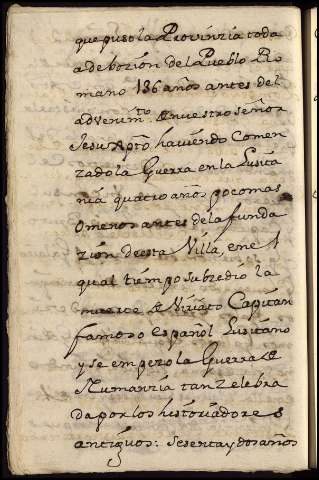 que puso la Provinzia toda
a debozion del Pueblo Ro
mano 136 años antes del
advenim.to de nuestro señor
Jesu Xpto haviendo Comen
zado la Guerra en la Lusita
nia quatro años poco mas
o menos antes de la funda
zion de esta Villa, en el
qual tiempo subzedio la
muerte de Viriato Capitan
famoso Español Lusitano
y se empezo la Guerra de
Numanzia tan Zelebra
da por los historiadores
antiguos: sesenta y dos años